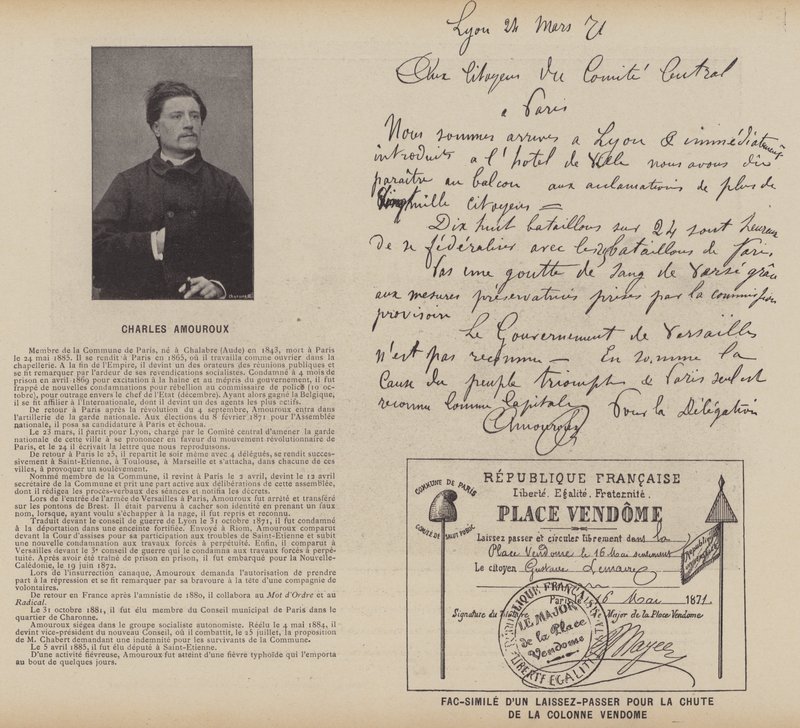 CHARLES AMOUROUX
Membre de la Commune de Paris, né à Chalabre (Aude) en 1843, mort à Paris
le 24 mai 1885. Il se rendit à Paris en 1865, où il travailla comme ouvrier dans la
chapellerie. A la fin de l'Empire, il devint un des orateurs des réunions publiques et
se fit remarquer par l'ardeur de ses revendications socialistes. Condamné à 4 mois de
prison en avril 1869 pour excitation à la haine et au mépris du gouvernement, il fut
frappé de nouvelles condamnations pour rébellion au commissaire de police (10 oc-
tobre), pour outrage envers le chef de l'Etat (décembre). Ayant alors gagné la Belgique,
il se fit affilier à l'Internationale, dont il devint un des agents les plus actifs.
De retour à Paris après la révolution du 4 septembre, Amouroux entra dans
l'artillerie de la garde nationale. Aux élections du 8 février 1871 pour l'Assemblée
nationale, il posa sa candidature à Paris et échoua.
Le 23 mars, il partit pour Lyon, chargé par le Comité central d'amener la garde
nationale de cette ville à se prononcer en faveur du mouvement révolutionnaire de
Paris, et le 24 il écrivait la lettre que nous reproduisons.
De retour à Paris le 25, il repartit le soir même avec 4 délégués, se rendit succes-
sivement à Saint-Etienne, à Toulouse, à Marseille et s'attacha, dans chacune de ces
villes, à provoquer un soulèvement.
Nommé membre de la Commune, il revint à Paris le 2 avril, devint le 13 avril
secrétaire de la Commune et prit une part active aux délibérations de cette assemblée,
dont il rédigea les procès-verbaux des séances et notifia les décrets.
Lors de l'entrée de l'armée de Versailles à Paris, Amouroux fut arrêté et transféré
sur les pontons de Brest. Il était parvenu à cacher son identité en prenant un faux
nom, lorsque, ayant voulu s'échapper à la nage, il fut repris et reconnu.
Traduit devant le conseil de guerre de Lyon le 31 octobre 1871, il fut condamné
à la déportation dans une enceinte fortifiée. Envoyé à Riom, Amouroux comparut
devant la Cour d'assises pour sa participation aux troubles de Saint-Etienne et subit
une nouvelle condamnation aux travaux forcés à perpétuité. Enfin, il comparut à
Versailles devant le 3e conseil de guerre qui le condamna aux travaux forcés à perpé-
tuité. Après avoir été traîné de prison en prison, il fut embarqué pour la Nouvelle-
Calédonie, le 19 juin 1872.
Lors de l'insurrection canaque, Amouroux demanda l'autorisation de prendre
part à la répression et se fit remarquer par sa bravoure à la tête d'une compagnie de
volontaires.
De retour en France après l'amnistie de 1880, il collabora au Mot d'Ordre et au
Radical.
Le 31 octobre 1881, il fut élu membre du Conseil municipal de Paris dans le
quartier de Charonne.
Amouroux siégea dans le groupe socialiste autonomiste. Réélu le 4 mai 1884, il
devint vice-président du nouveau Conseil, où il combattit, le 25 juillet, la proposition
de M. Chabert demandant une indemnité pour les survivants de la Commune.
Le 5 avril 1885, il fut élu député à Saint-Etienne.
D'une activité fiévreuse, Amouroux fut atteint d'une fièvre typhoïde qui l'emporta
au bout de quelques jours.
Lyon 24 Mars 71
Aux Citoyens du Comité Central
a Paris
Nous sommes arrives a Lyon & immédiatement
introduits a l'hotel de Ville nous avons dû
paraître au balcon aux acclamations de plus de
Vingt mille Citoyens =
Dix huit bataillons sur 24 sont heureux
de se fédéraliser avec les bataillons de Paris
Pas une goutte de sang de versé grâce
aux mesures préservatrices prises par la commission
provisoire
Le Gouvernement de Versailles
n'est pas reconnu — En somme la
Cause du peuple triomphe & Paris seul est
reconnu comme Capitale
Pour la Délégation
Amouroux
COMMUNE DE PARIS
COMITÉ DE SALUT PUBLIC
RÉPUBLIQUE FRANÇAISE
Liberté. Egalité. Fraternité.
PLACE VENDÔME
Laissez passer et circuler librement dans la
Place Vendome le 16 Mai seulement
Le citoyen Gustave Lemaire
République
Paris le 16 Mai 1871
Signature du Titulaire
Major de la Place Vendome
Mayer
RÉPUBLIQUE FRANÇAISE
LE MAJOR
de la Place
Vendome
LIBERTÉ EGALITÉ
FAC-SIMILÉ D'UN LAISSEZ-PASSER POUR LA CHUTE
DE LA COLONNE VENDOME